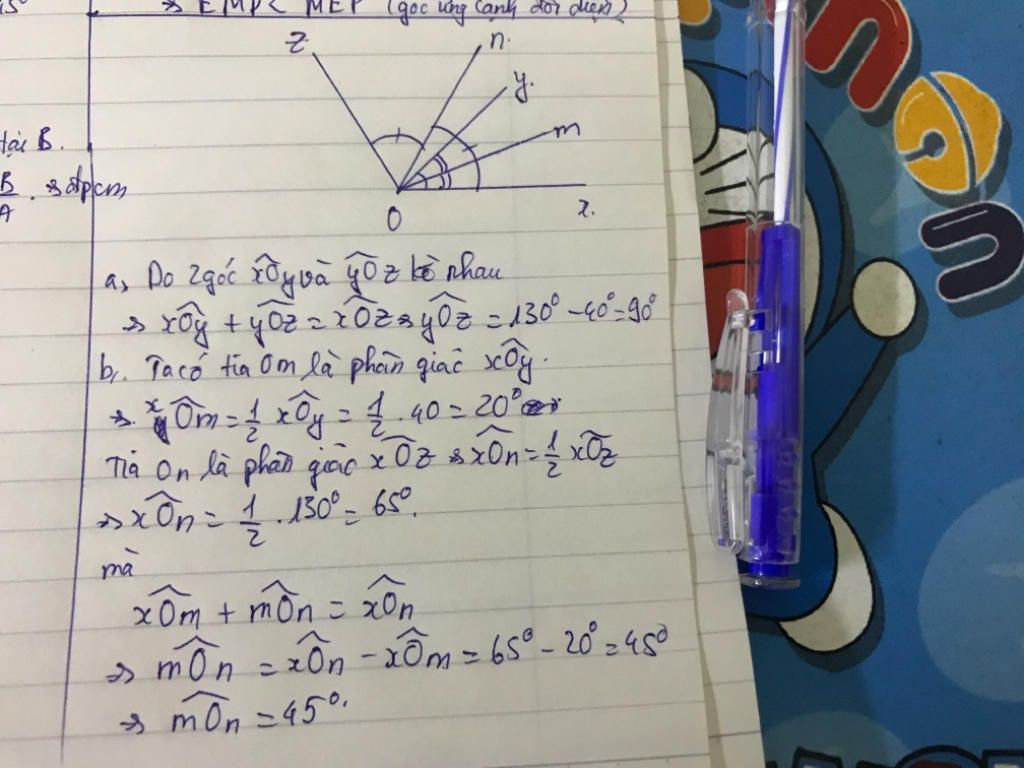 ⇒ EMP < MEP (góc ứng cạnh đối diện)
z
n.
y.
m
O
x.
tại B.
B
A
. ⇒ đpcm
a, Do 2 góc xÔy và yÔz kề nhau
⇒ xÔy + yÔz = xÔz ⇒ yÔz = 130° - 40° = 90°
b,. Ta có tia Om là phân giác xÔy.
⇒. xÔm = 1/2 xÔy = 1/2 . 40 = 20°
Tia On là phân giác xÔz ⇒ xÔn = 1/2 xÔz
⇒ xÔn = 1/2 . 130° = 65°.
mà
xÔm + mÔn = xÔn
⇒ mÔn = xÔn - xÔm = 65° - 20° = 45°
⇒ mÔn = 45°.